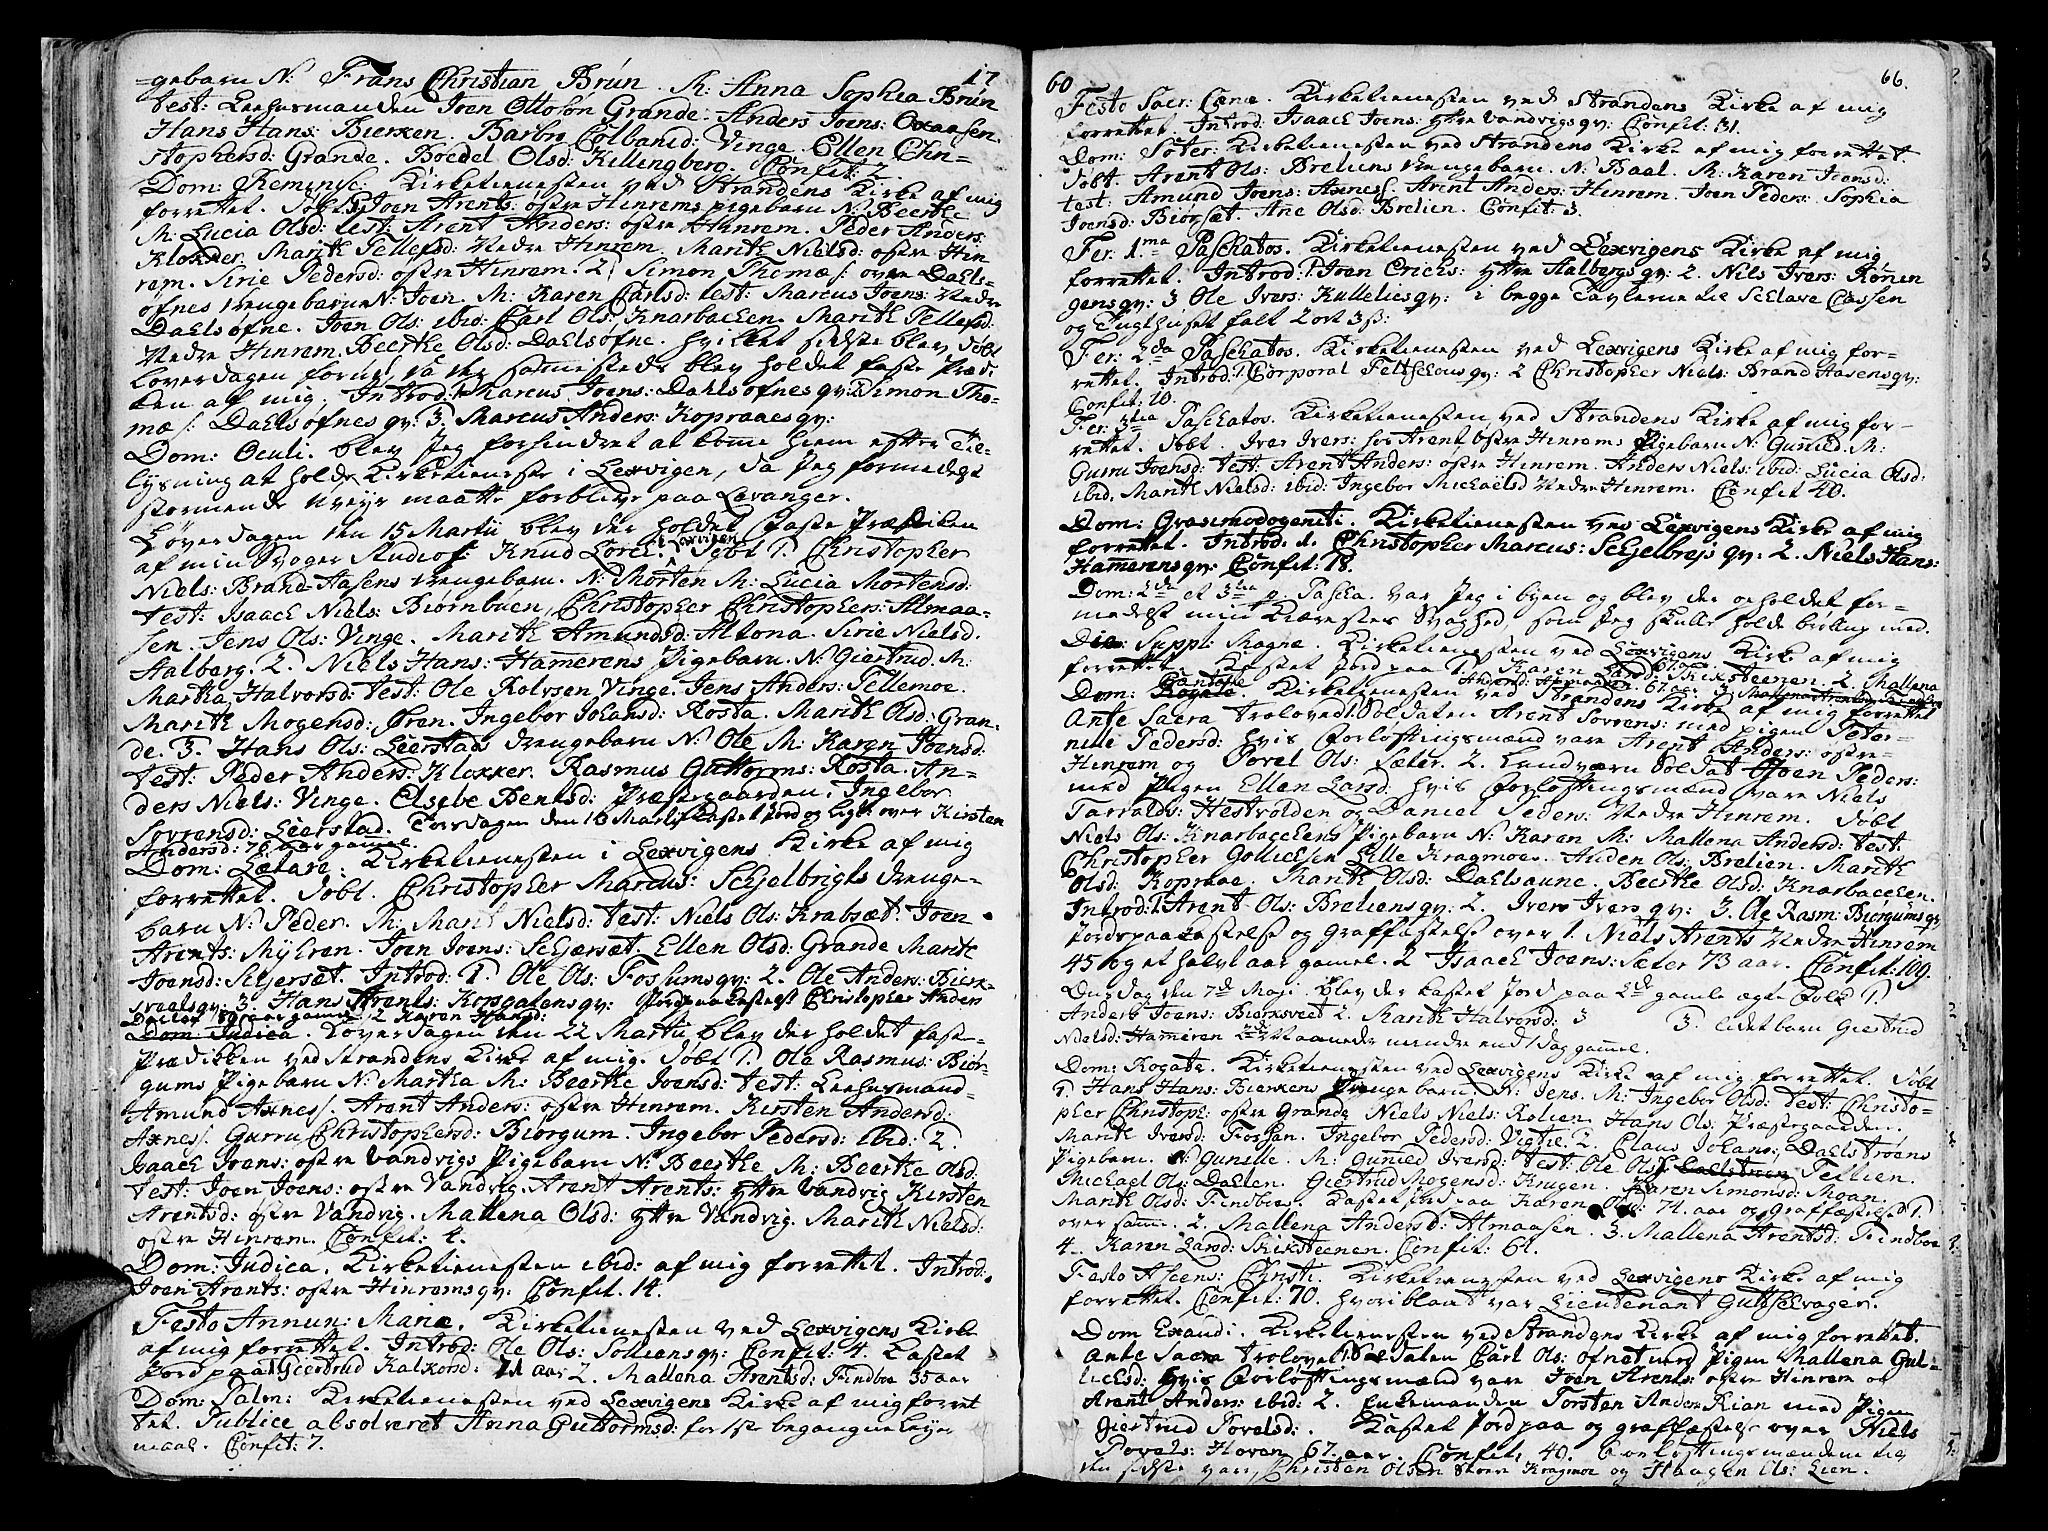 17
=gebarn N: Frans Christian Brun. M: Anna Sophia Brun
test: Leehusmanden Joen Ottoson Grande. Anders Joens: Oxaasen.
Hans Hans: Bierken. Barbro Colbansd: Vinge. Ellen Chri=
stophersd: Grande. Boedel Olsd: Killingberg. Confit: 2.
Dom: Reminisc: Kirketienesten ved Strandens Kirke af mig
forrettet. Døbt 1 Joen Arents: østre Hinrems pigebarn N: Beerthe
M: Lucia Olsd: test: Arent Anders: østre Hinrem. Peder Anders:
Klokker. Marith Tellefsd: Nedre Hinrem. Marith Nielsd: østre Hin
rem. Sirie Pedersd: østre Hinrem. 2. Simon Thomæs: øvre Dahls=
øfnes drengebarn N: Joen. M: Karen Carlsd: test: Marcus Joens: Nedre
Dahlsøfne. Joen Ols: ibid: Carl Ols: Knarbacken. Marith Tellefsd:
Nedre Hinrem. Beerthe Olsd: Dahlsøfne. hvilket sidste blev døbt
Løverdagen forud, da der sammestæds blev holdet faste Præd:
ken af mig. Introd: 1 Marcus Joens: Dahlsøfnes qv: 2 Simon Tho=
mæs: Dahlsøfnes qv: 3. Marcus Anders: Kopraaes qv:
Dom: Oculi. blev Jeg forhindret at kome hiem efter Til=
lysning at holde Kirketieneste i Lexvigen, da Jeg formedelst
stormende uveyr maatte forblive paa Levanger.
Løverdagen den 15 Martii blev der holdet faste Prædiken
af min Svoger Studios: Knud Lorch i Lexvigen. Døbt 1. Christopher
Niels: Brand Aasens drengebarn. N: Morten M: Lucia Mortensd:
test: Isaach Niels: Biørnbuen, Christopher Christophers: Almaa=
sen. Jens Ols: Vinge. Marith Amundsd: Altona. Sirie Nielsd.
Aalberg. 2. Niels Hans: Hamerens Pigebarn. N: Giertrud. M:
Martha Halvorsd: test: Ole Rolvsen Vinge. Jens Anders: Tellemoe.
Marith Mogensd: Øren. Ingebor Johansd: Rosta. Marith Olsd: Gran=
de. 3. Hans Ols: Leerstads drengebarn N: Ole M: Karen Joensd:
test: Peder Anders: Klokker. Rasmus Guttorms: Rosta. An=
ders Niels: Vinge. Elsebe Bentsd: Præstegaarden. Ingebor
Sørensd: Leerstad. Torsdagen den 18 Martii kastet Jord og ligt: over Kirsten
Andersd: 76 aar gamel.
Dom: Lætare: Kirketienesten i Lexvigens Kirke af mig
forrettet. Døbt. Christopher Marcus: Schielbrigts drenge=
barn N: Peder. M: Marit Nielsd: test: Niels Ols: Krabsæt. Joen
Arents: Myhren. Joen Joens: Schiersæt. Ellen Olsd: Grande Marith
Joensd: Schiersæt. Introd: 1. Ole Ols: Fossumsqv: 2. Ole Anders: Bierk=
svoelsqv: 3 Hans Arents: Kopgalens qv: Jordspaakastelse Christopher Anders
Dallen 80 aar gamel 2 Karen Hansd:
Dom Judica. Løverdagen den 22 Martii blev der holdet faste=
Prædikken ved Strandens Kirke af mig. Døbt 1. Ola Rasmus: Biør=
gums Pigebarn N: Martha M: Beerthe Joensd: test: Leehusmand
Amund Axness. Arent Anders: østre Hinrem. Kirsten Andersd:
Axness. Gurru Christophersd: Biørgum. Ingebor Pedersd: ibid: 2.
Isaach Joens: østre Vandvigs Pigebarn N: Beerthe M: Beerthe Olsd:
test: Joen Joens: østre Vandvig. Arent Arents: yttre Vandvig Kirsten
Arentsd: østre Vandvig. Mallena Olsd: yttre Vandvig. Marith Nielsd:
østre Hinrem. Confit: 4.
Dom: Judica. Kirketienesten ibid: af mig forrettet. Introd:
Joen Arents: østre Hinremsqv: Confit. 14.
Festo Annun: Mariæ. Kirketienesten ved Lexvigens Kirke
af mig forrettet. Introd: Ole Ols: Solliensqv: Confit: 4. Kastet
Jord paa 1 Giertrud Kalkorsd: 71 aar 2. Mallena Arentsd: Findboe 35 aar
Dom: Palm: Kirketienesten ved Lexvigens Kirke af mig forret
tet. Publice absolveret Anna Guttormsd: for 1ste begangne leyer
maal. Confit: 7.
60
66.
Festo Sacr: Cænæ. Kirketienesten ved Strandens Kirke af mig
forrettet. Introd: Isaach Joens: yttre Vandvigs qv: Confit: 31.
Dom: Soter: Kirketienesten ved Strandens Kirke af mig forrettet.
døbt. Arent Ols: Breliens drengebarn. N: Baal. M: Karen Joensd:
test: Amund Joens: Axness. Arent Anders: Hinrem. Joen Peders: Sophia
Joensd: Biørset. Ane Olsd: Brelien. Confit: 3.
Fer: 1.ma Paschatos. Kirketienesten ved Lexvigens Kirke af mig
forrettet. Introd: 1. Joen Erichs: yttre Aalbergs qv: 2. Niels Ivers: Rønen
gens qv: 3 Ole Ivers: Kulleliesqv: i begge Tavlerne til Sclave Cassen
og Tugthuset falt 2 ort 3 ß:
Fer: 2da Paschatos. Kirketienesten ved Lexvigens Kirke af mig for=
rettet. Introd: 1 Corporal Feltschous qv: 2 Christopher Niels: Brand Aasens qv:
Confit: 10.
Fer: 3tia Paschatos. Kirketienesten ved Strandens Kirke af mig for=
rettet. Døbt. Iver Ivers: hos Arent østre Hinrems Pigebarn N: Gunild. M:
Gurru Joensd: test: Arent Anders: østre Hinrem. Anders Niels: ibid: Lucia Olsd:
ibid. Marith Nielsd: ibid: Ingebor Michaelsd Nedre Hinrem. Confit 40.
Dom: Qvasimodogeniti. Kirketienesten ved Lexvigens Kirke af mig
forrettet. Introd. 1. Christopher Marcus: Schjelbrejs qv: 2. Niels Hans:
Hamerens qv: Confit: 18.
Dom: 2da et 3tia p. Pascha. var Jeg i byen og blev der opholdet for=
medelst min Kiærestes Svaghed, som Jeg skulle holde bryllup med.
Die: Suppl: Magnæ. Kirketienesten ved Lexvigens Kirke af mig
forrettet. Kastet Jord paa 1. Karen Larsd: Skiksteenen. 2 Mallena
Andersd: Almaasen 67 aar. 3. Mallena Arentsd: Findboe
Dom: Cantate Rogate. Kirketienesten ved Strandens Kirke af mig forrettet
Ante Sacra troloved 1 Soldaten Arent Sørens: med pigen Peter=
nille Pedersd: hvis Forløftningsmænd vare Arent Anders: østre
Hinrem og Povel Ols: Sæter. 2. Landværn Soldat Joen Peders:
med Pigen Ellen Larsd: hvis Forløftningsmænd vare Niels
Tarralds: Hestvolden og Daniel Peders: Nedre Hinrem. Døbt
Niels Ols: Knarbackens Pigebarn N: Karen M: Mallena Andersd: test:
Christopher Gollichsen Lille Kragmoe. Auden Ols: Brelien. Marith
Olsd: Kopraae. Marith Olsd: Dahlsaune. Beerthe Olsd: Knarbacken.
Introd: 1. Arent Ols: Breliensqv: 2. Iver Ivers qv: 3. Ole Rasm: Biørgums qv
Jordspaakastelse og graffæstelse over 1. Niels Arents Nedre Hinrem
45 og et halv aar gamel. 2 Isaach Joens: Sæter 73 aar. Confit: 109.
Onsdag den 7de Maji blev der kastet Jord paa 2de gamle ægte Folk 1.
Anders Joens: Bierksvedt 2. Marith Halvorsd: 3 3. lidet barn Giertrud
Nielsd: Hameren 2de Maaneder mindre end 1 dag gamel.
Dom: Rogate. Kirketienesten ved Lexvigens Kirke af mig forrettet. Døbt
1. Hans Hans: Bierkens Drengebarn N: Jens. M: Ingebor Olsd: test: Christo=
pher Christoph: østre Grande Niels Niels: Rolien. Hans Ols: Præstegaarden.
Marith Iversd: Fossan. Ingebor Pedersd: Vigtil. 2. Claus Johans: Dahlstrøens
Pigebarn. N: Gunille. M: Gunild Iversd: test: Ole Ols: Dahlstrøen Tellien.
Michael Ols: Dahlen. Giertrud Mogensd: Krogen. Karen Simonsd: Moan.
Marith Olsd: Findboe. Kastet Jord paa Karen Olsd: 74. aar og graffæstelse 1.
over samme. 2. Mallena Andersd: Almaasen. 3. Mallena Arentsd: Findboe
4. Karen Larsd: Skiksteenen. Confit: 61.
Festo Ascens: Christi. Kirketienesten ved Lexvigens Kirke af mig
forrettet. Confit: 70. hvoriblant var Lieutenant Guttselvager.
Dom Exaudi. Kirketienesten ved Strandens Kirke af mig forrettet.
Ante Sacra trolovet 1 Soldaten Carl Ols: Ofnet med Pigen Mallena Gul=
lichsd: hvis Forløftningsmænd vare Joen Arents: østre Hinrem og
Arent Anders: ibid: 2. Enkemanden Torsten Anders: Rian med Pigen
Giertrud Povelsd: Kastet Jord paa og graffæstelse over Niels
Povels: Hoven 67. aar. Confit: 40. Forløftningsmændene til
den sidste vare Christen Olsen store Kragmoe og Haagen Ols: Lien.